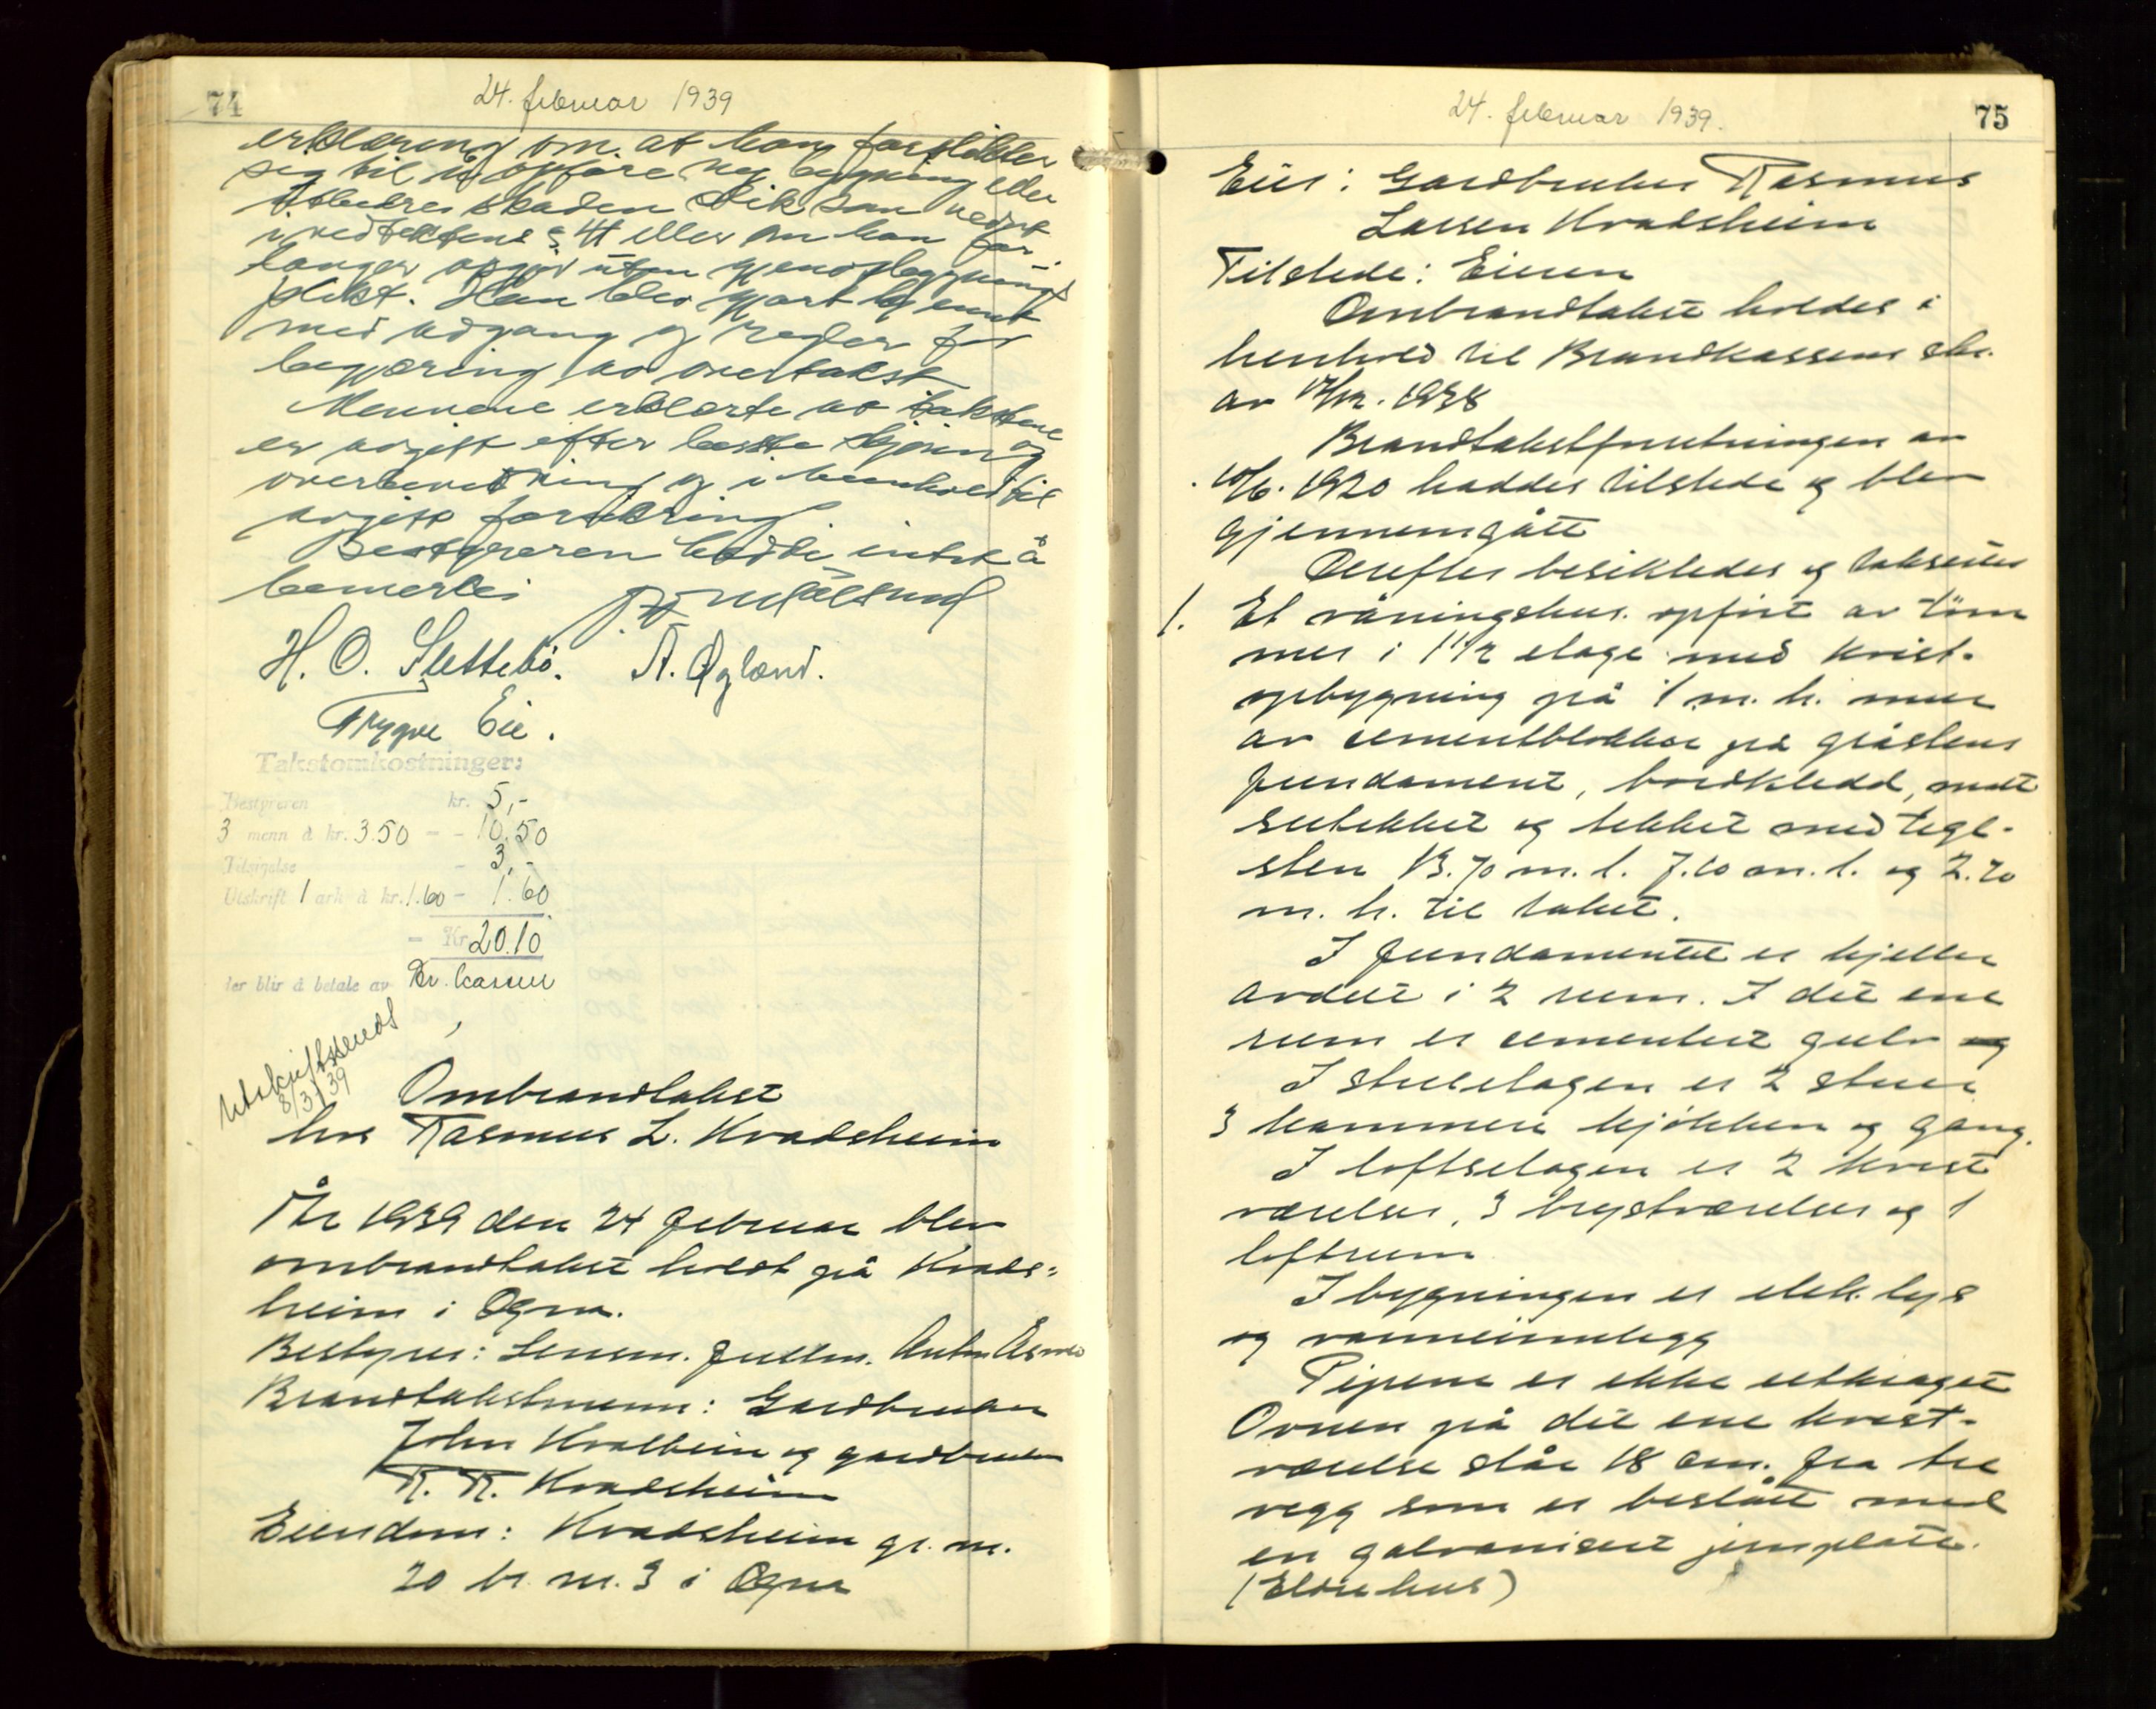 74
24. februar 1939
erklæring om at han forplikter
sig til å opføre ny bygning eller
utbedre skaden slik som nevnt
i vedtektene § 44 eller om han for-
langer opgjør uten gjenopbygnings
plikt. Han blev gjort bekjent
med adgang og regler for
begjæring av overtakst
Mennene erklærte at takstene
er avgitt efter beste skjønn og
overbevisning og i henhold til
avgitt forsikring.
Bestyreren hadde intet å
bemerke
H. O. Slettebö. A. Ogland.
Trygve Eie.
Takstomkostninger:
Bestyreren kr. 5,-
3 menn à kr. 3.50 - - 10.50
Tilsigelse - 3,-
Utskrift 1 ark à kr. 1.60 - 1.60
- Kr 20.10
der blir å betale av Br. kassen
Utskrift sendt
8/3/39
Ombrandtakst
hos Rasmus L. Kvadsheim
År 1939 den 24 februar blev
ombrandtakst holdt på Kvads=
heim i Ogna.
Bestyrer: Lensm. fullm.
Brandtakstmenn: Gardbruker
John Kvalbein og gardbruker
R. R. Kvadsheim
Eiendom: Kvadsheim gr. nr.
20 br. nr. 3 i Ogna
24. februar 1939.
75
Eier: Gardbruker Rasmus
Larsen Kvadsheim
Tilstede: Eieren
Ombrandtakst holdes i
henhold til Brandkassens skr.
av 17/12. 1938
Brandtakstforretningen av
10/6. 1920 haddes tilstede og blev
gjennemgått
Derefter besiktedes og takseres
1. Et våningshus opført av töm
mer i 1 1/2 etage med kvist-
opbygning på 1 m. h. mur
av cementblokker på gråstens
fundament, bordkledd, malt
sutekket og tekket med tegl-
sten 13.70 m. l. 7.10 m. b. og 2.70
m. h. til taket.
I fundamentet er kjeller
avdelt i 2 rum. I det ene
rum er cementert gulv
I stueetagen er 2 stuer
3 kammere kjøkken og gang.
I loftsetagen er 2 kvist
værelser, 3 brystværelser og 1
loftrum
I bygningen er elek. lys
og vanninnlegg
Pipene er ikke utkraget
Ovnen på det ene kvist-
værelse står 18 cm. fra tre
vegg som er beslått med
en galvanisert jernplate.
(Eldre hus)